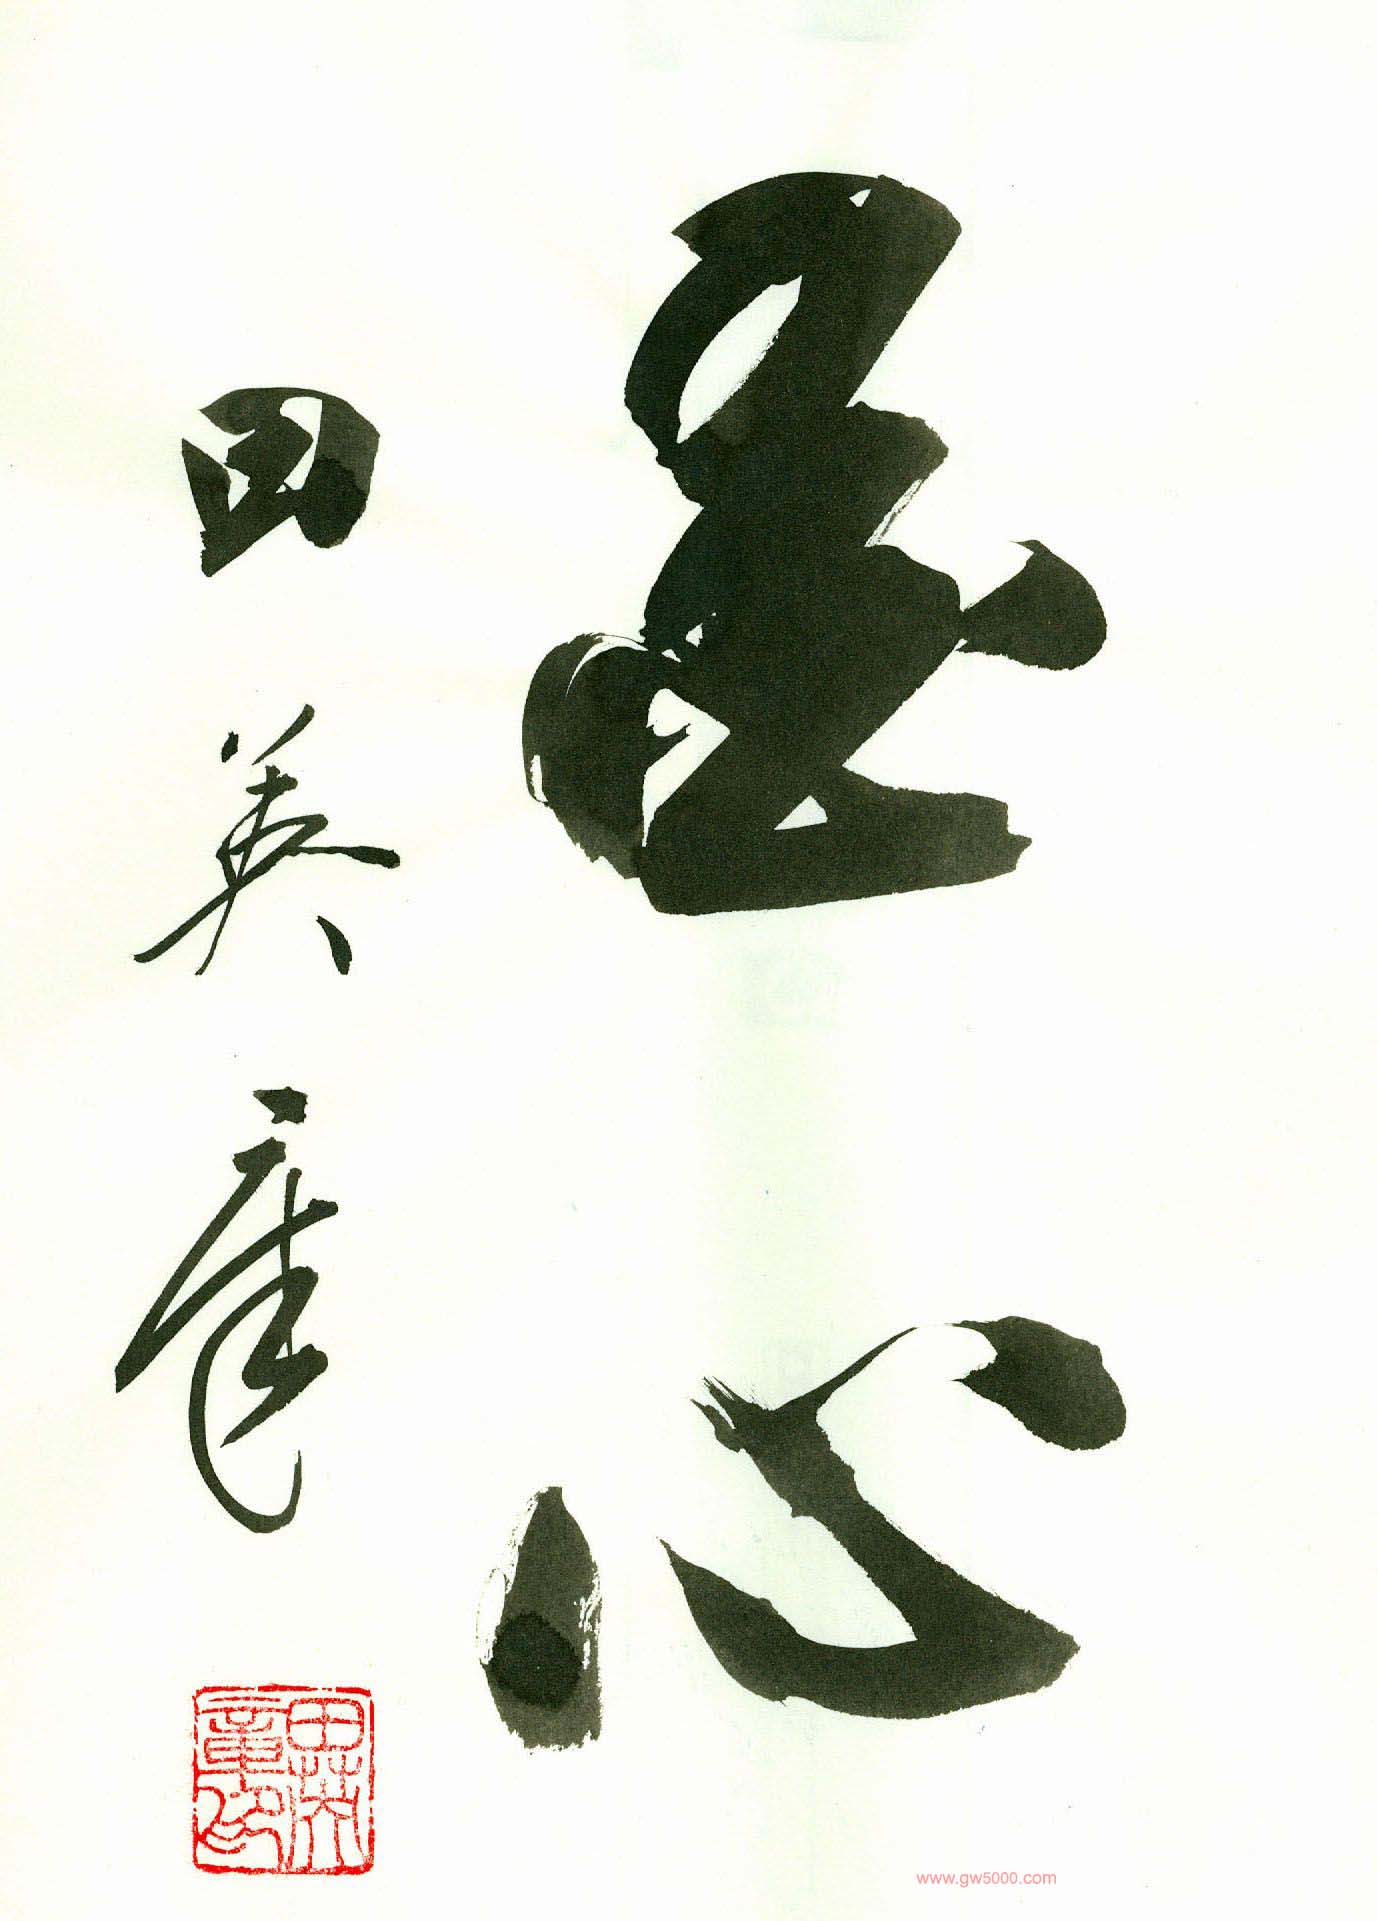 心
田英章
田英
章印
www.gw5000.com